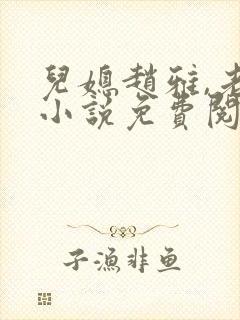 兒媳趙雅,老
小說免費閱
子漁非鱼